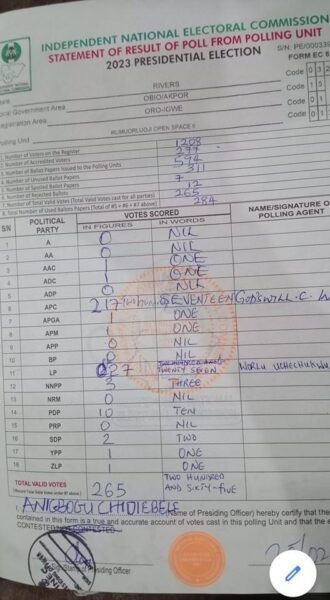 INDEPENDENT NATIONAL ELECTORAL COMMISSION
STATEMENT OF RESULT OF POLL FROM POLLING UNIT
2023 PRESIDENTIAL ELECTION
S/N. PE/
FORM EC 8
RIVERS
Code 0 3 2
OBIO/AKPOR
Local Government Area
Code 1 5
ORO-IGWE
Registration Area
Code 0
Polling Unit
RUMUORLUOJI OPEN SPACE II
Code 0
1. Number of Voters on the Register 1208
2. Number of Accredited Voters 277
3. Number of Ballot Papers Issued to the Polling Units 594
4. Number of Unused Ballot Papers 311
5. Number of Spoiled Ballot Papers 7
6. Number of Rejected Ballots 12
7. Number of Total Valid Votes (Total Valid Votes cast for all parties) 265
8. Total Number of Used Ballots Papers (Total of #5 + #6 + #7 above) 284
S/N POLITICAL PARTY VOTES SCORED NAME/SIGNATURE OF POLLING AGENT
IN FIGURES IN WORDS
1 A 0 NIL
2 AA 0 NIL
3 AAC 1 ONE
4 ADC 1 ONE
5 ADP 0 NIL
6 APC 217 SEVENTEEN GODSWILL .C.
7 APGA 1 ONE
8 APM 1 ONE
9 APP 0 NIL
10 BP 0 NIL
11 LP 27 TWENTY SEVEN WORLU UCHECHUKWU
12 NNPP 3 THREE
13 NRM 0 NIL
14 PDP 10 TEN
15 PRP 0 NIL
16 SDP 2 TWO
17 YPP 1 ONE
18 ZLP 1 ONE
TOTAL VALID VOTES 265 TWO HUNDRED AND SIXTY-five
I, ANIGBOGU CHIDIEBELE (Name of Presiding Officer) hereby certify that the
contained in this form is a true and accurate account of votes cast in this polling Unit and that the
CONTESTED/NOT CONTESTED
Presiding Officer